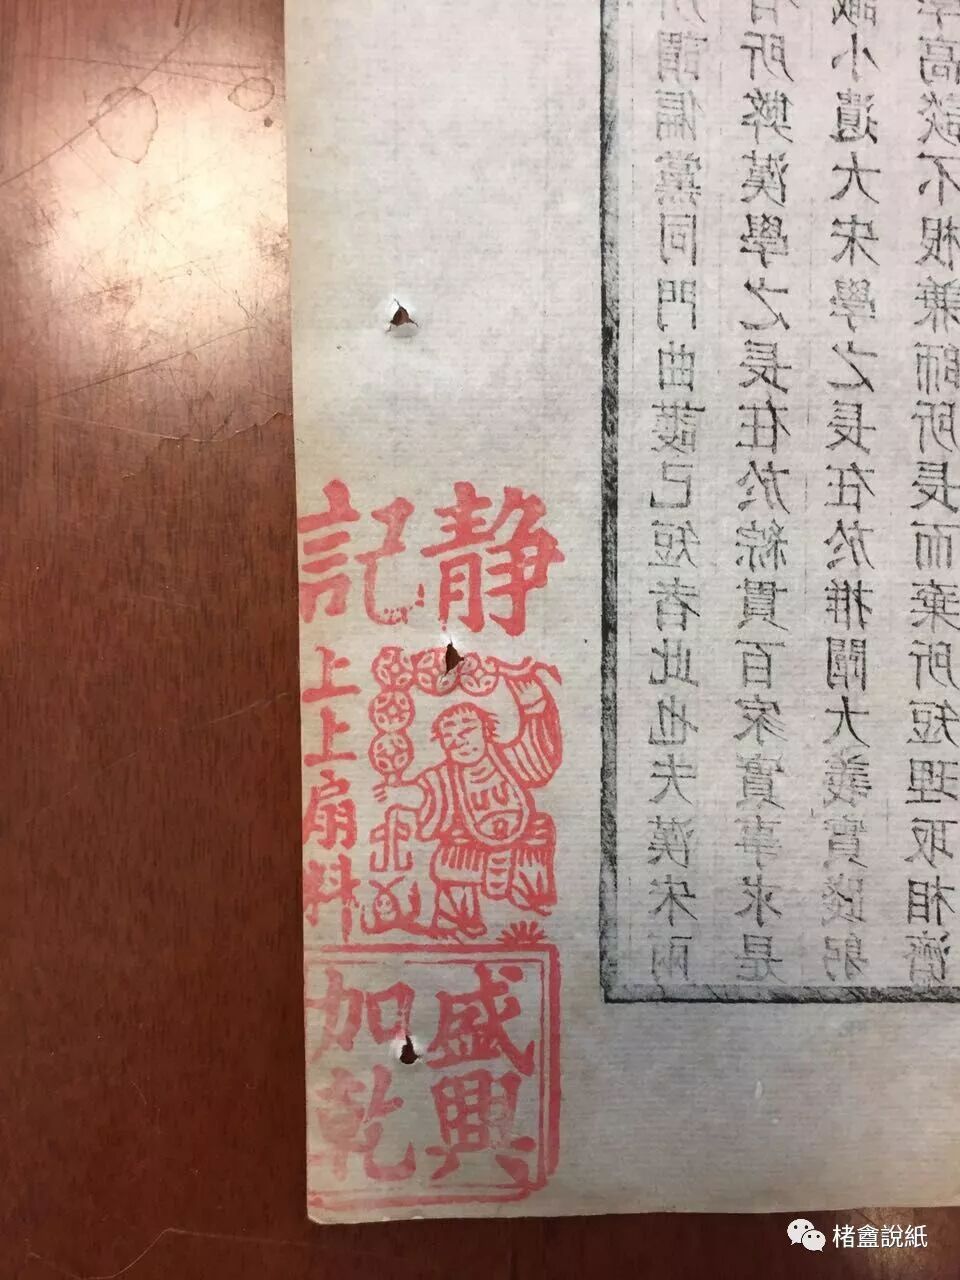 静記
上上扇料
盛興
加乾
所謂偏黨同門曲護己短者此也夫漢宋兩
者所弊漢學之長在於綜貫百家實事求是
識小遺大宋學之長在於推闡大義實踐躬
高談不根兼師所長而棄所短理取相濟
楮鑫說紙